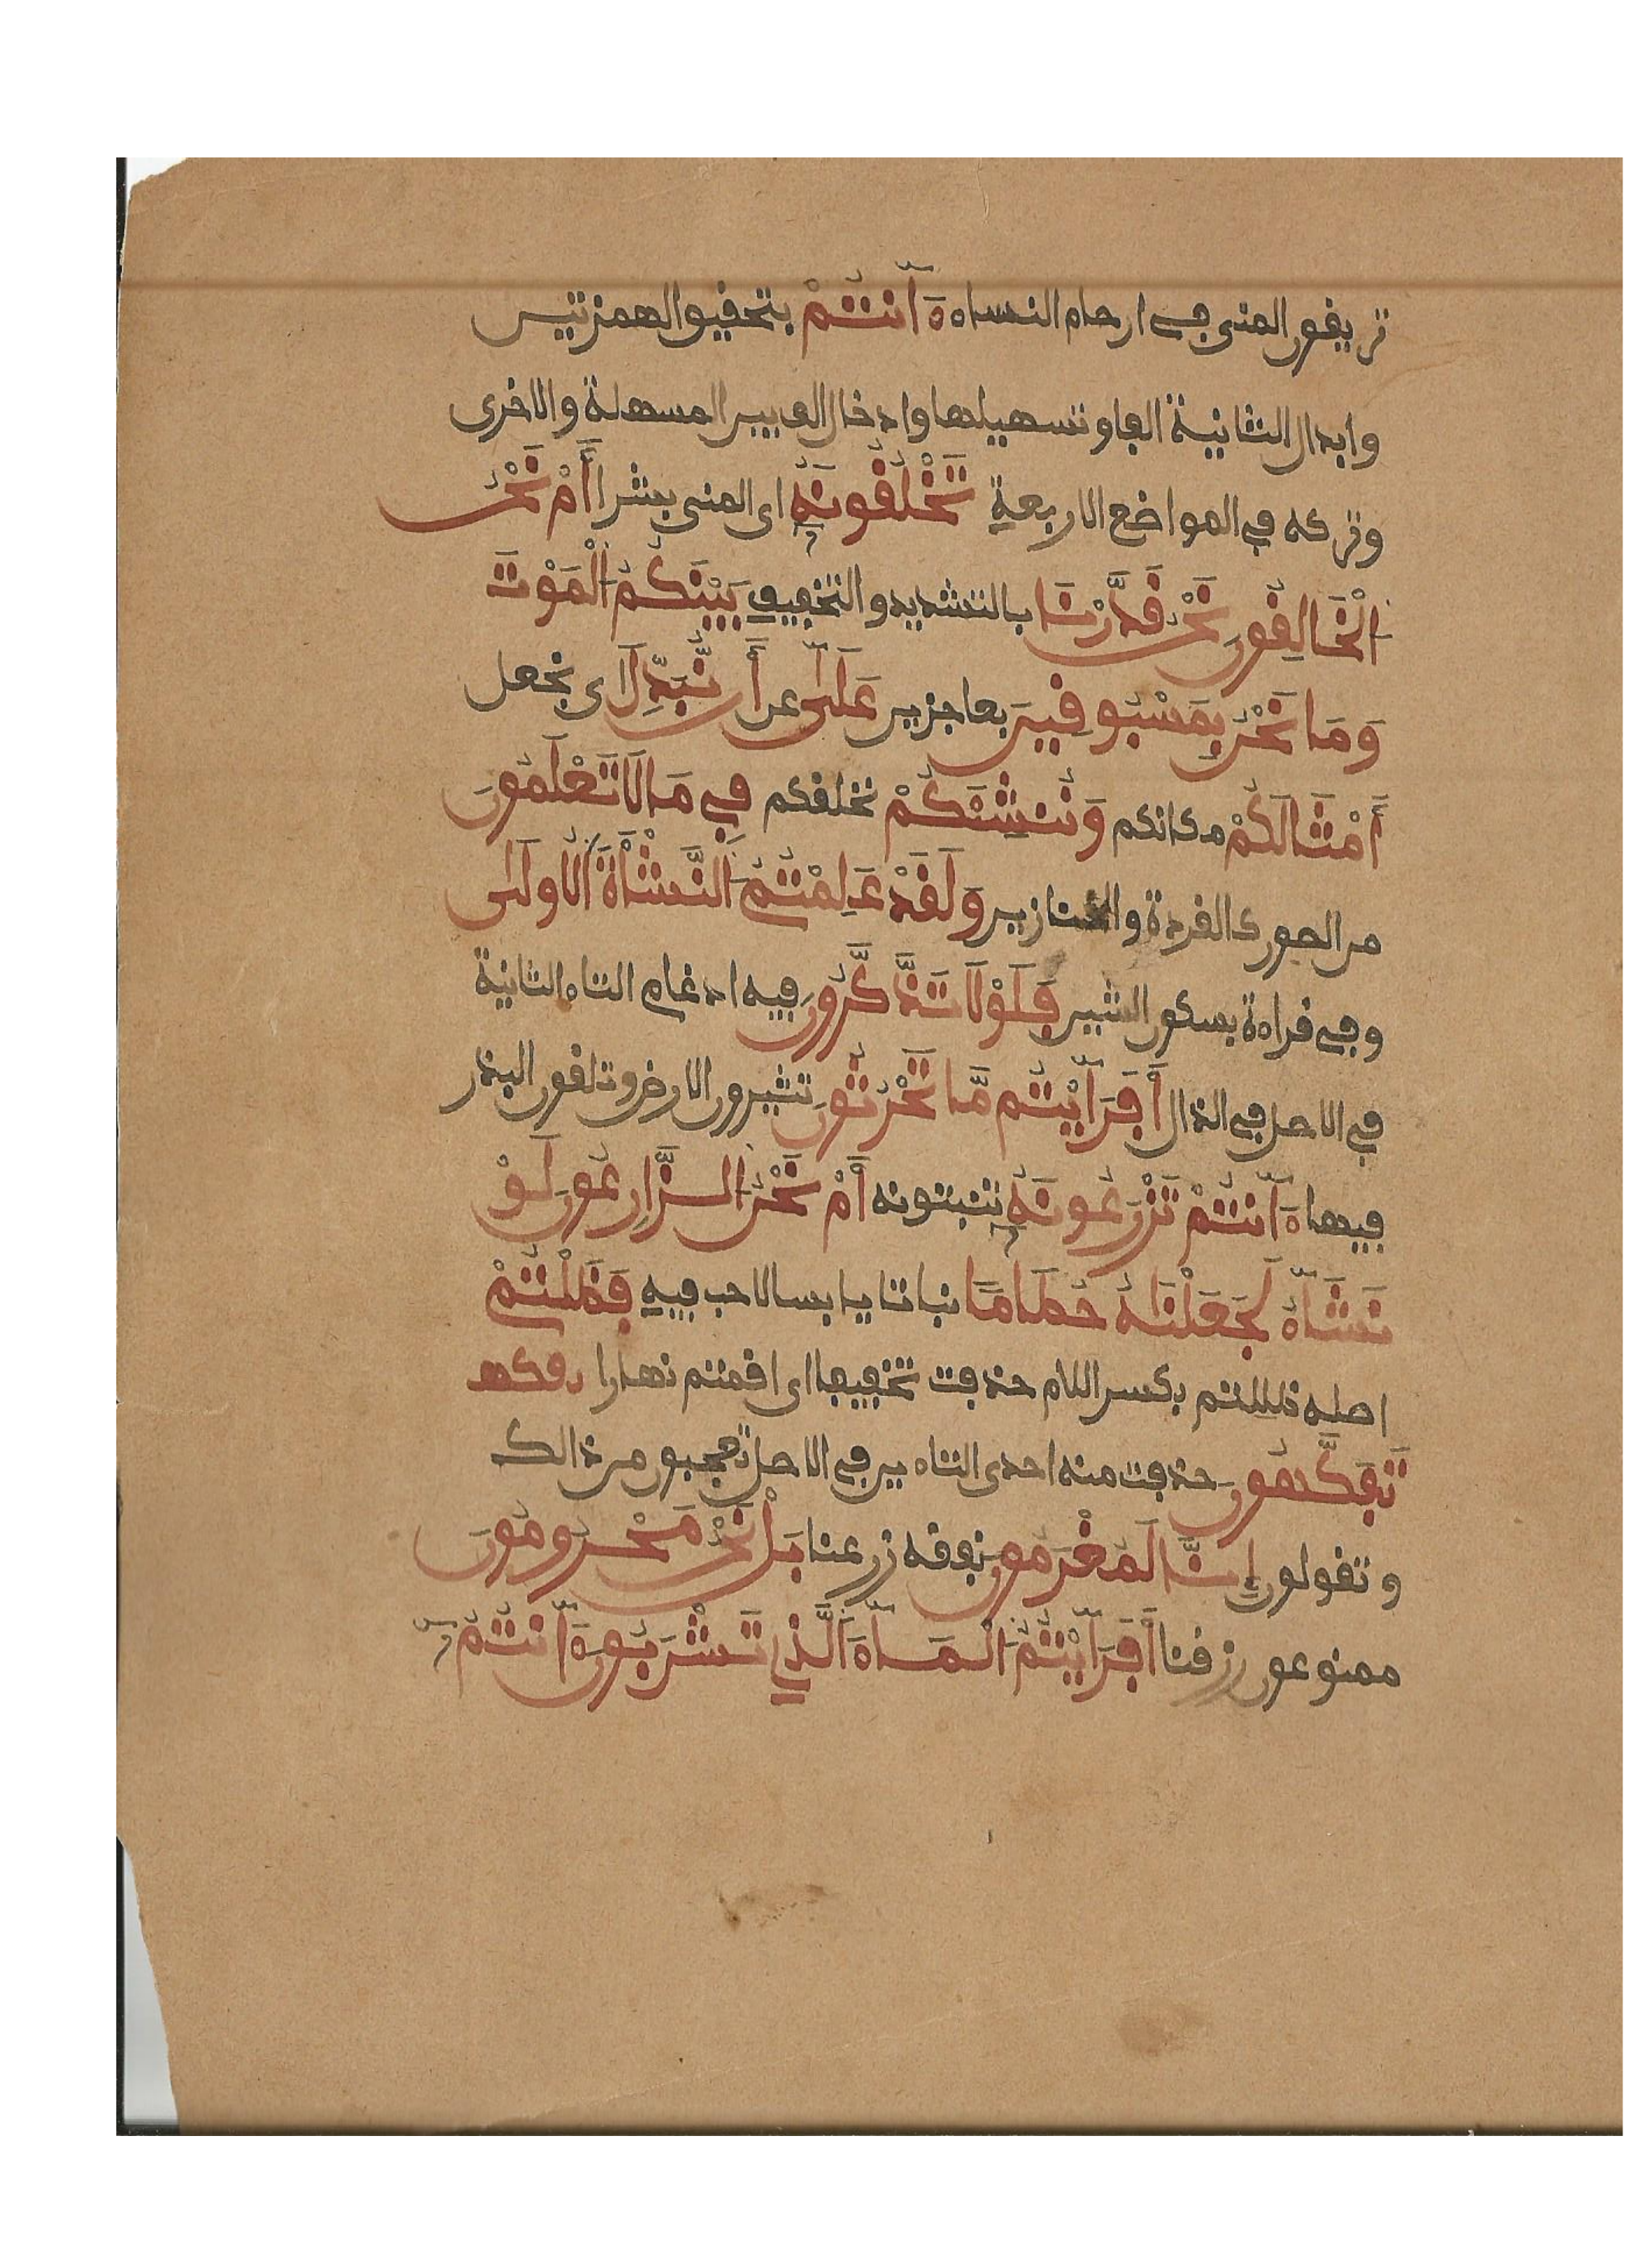 تريقون المني في ارحام النساء ءَآنتُمْ بتحقيق الهمزتين
وابدال الثانية الفا وتسهيلها وادخال الف بين المسهلة والاخرى
وتركه في المواضع الاربعة تَخْلُقُونَهُۥ اى المني بشرا أَمْ نَحْنُ
اَلْخَالِقُونَ نَحْنُ قَدَّرْنَا بالتشديد والتخفيف بَيْنَكُمُ اَلْمَوْتَ
وَمَا نَحْنُ بِمَسْبُوقِينَ بعاجزين عَلَىٰ عن أَن نُّبَدِّلَ اى نجعل
أَمْثَالَكُمْ مكانكم وَنُنشِئَكُمْ نخلقكم فِي مَا لَا تَعْلَمُونَ
من الصور كالقردة والخنازير وَلَقَدْ عَلِمْتُمُ اَلنَّشْأَةَ اَلْأُولَىٰ
وفي قراءة بسكون الشين فَلَوْلَا تَذَّكَّرُونَ فيه ادغام التاء الثانية
في الاصل في الذال أَفَرَآيْتُم مَّا تَحْرُثُونَ تثيرون الارض وتلقون البذر
فيها ءَآنتُمْ تَزْرَعُونَهُۥ تنبتونه أَمْ نَحْنُ اَلزَّارِعُونَ لَوْ
نَشَآءُ لَجَعَلْنَٰهُ حُطَامًا نباتا يابسا لا حب فيه فَظَلْتُمْ
اصله ظللتم بكسر اللام حذفت تخفيفا اى اقمتم نهارا
تَفَكَّهُونَ حذفت منه احدى التاءين في الاصل تعجبون من ذالك
وتقولون إِنَّا لَمُغْرَمُونَ نفقة زرعنا بَلْ نَحْنُ مَحْرُومُونَ
ممنوعون رزقنا أَفَرَآيْتُمُ اَلْمَآءَ اَلَّذِي تَشْرَبُونَ ءَآنتُمُۥٓ